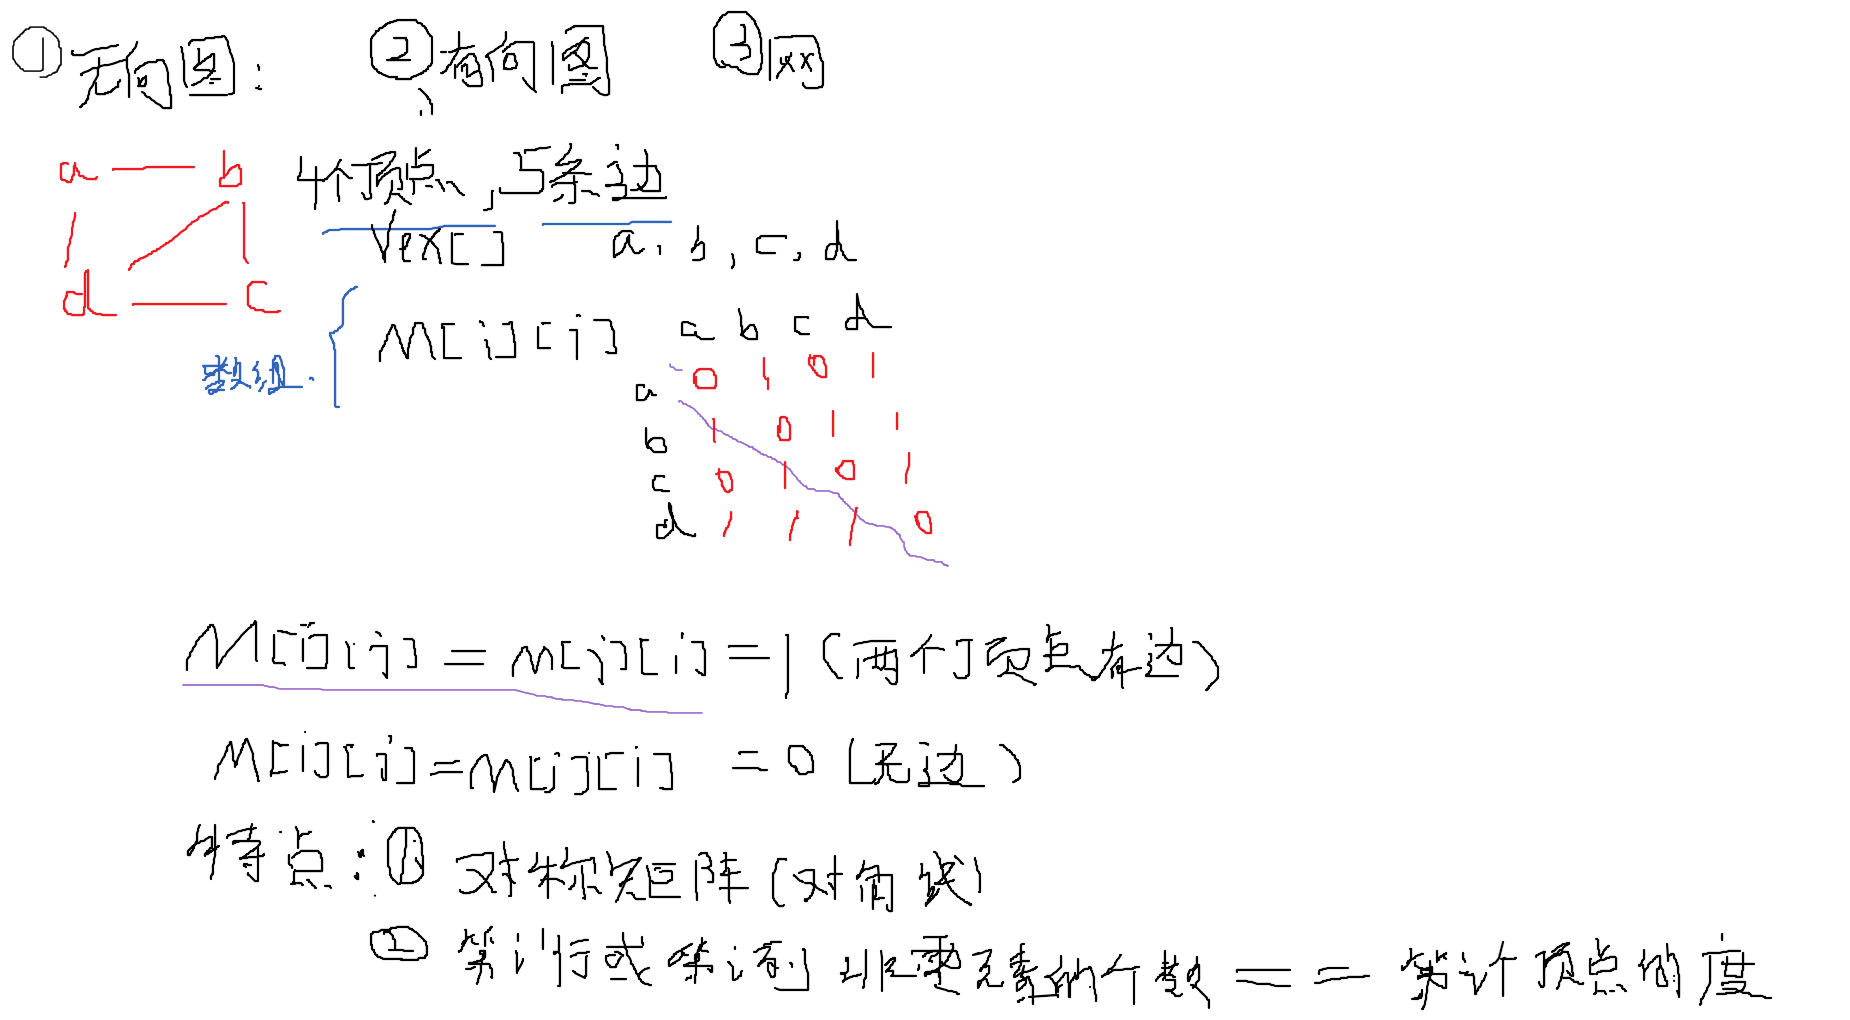 ①无向图: ②有向图 ③网
a b 4个顶点,5条边
Vex[] a, b, c, d
d c
M[i][j] a b c d
数组.
a 0 1 0 1
b 1 0 1 1
c 0 1 0 1
d 1 1 1 0
M[i][j] = M[j][i] = 1 (两个顶点有边)
M[i][j] = M[j][i] = 0 (无边)
特点:① 对称矩阵(对角线)
② 第i行或第i列非零元素的个数 == 第i个顶点的度